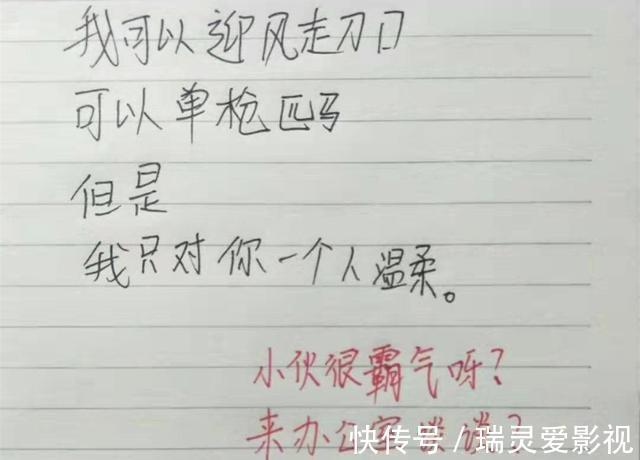 我可以迎风走刀口
可以单枪匹马
但是
我只对你一个人温柔。
小伙很霸气呀?
来办公室谈谈?
快传号/瑞灵爱影视